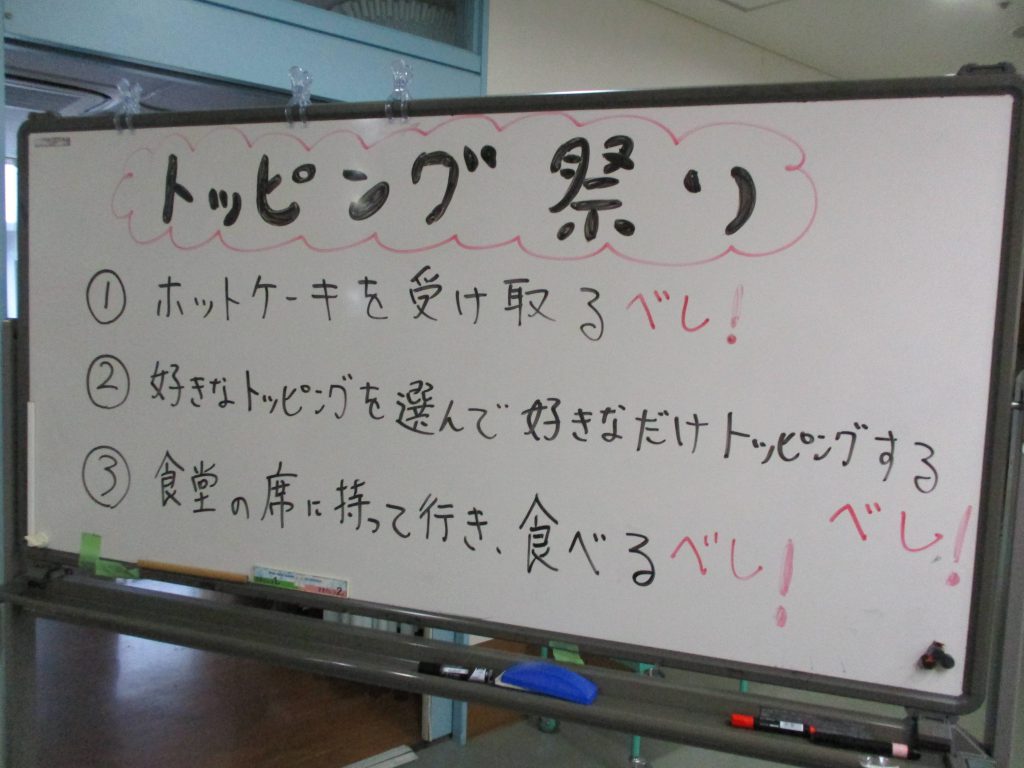 トッピング祭り
① ホットケーキを受け取るべし!
② 好きなトッピングを選んで好きなだけトッピングする
べし!
③ 食堂の席に持って行き、食べるべし!